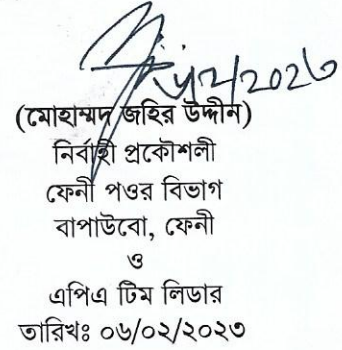 (মোহাম্মদ জহির উদ্দীন)
নির্বাহী প্রকৌশলী
ফেনী পওর বিভাগ
বাপাউবো, ফেনী
ও
এপিএ টিম লিডার
তারিখঃ ০৬/০২/২০২৩